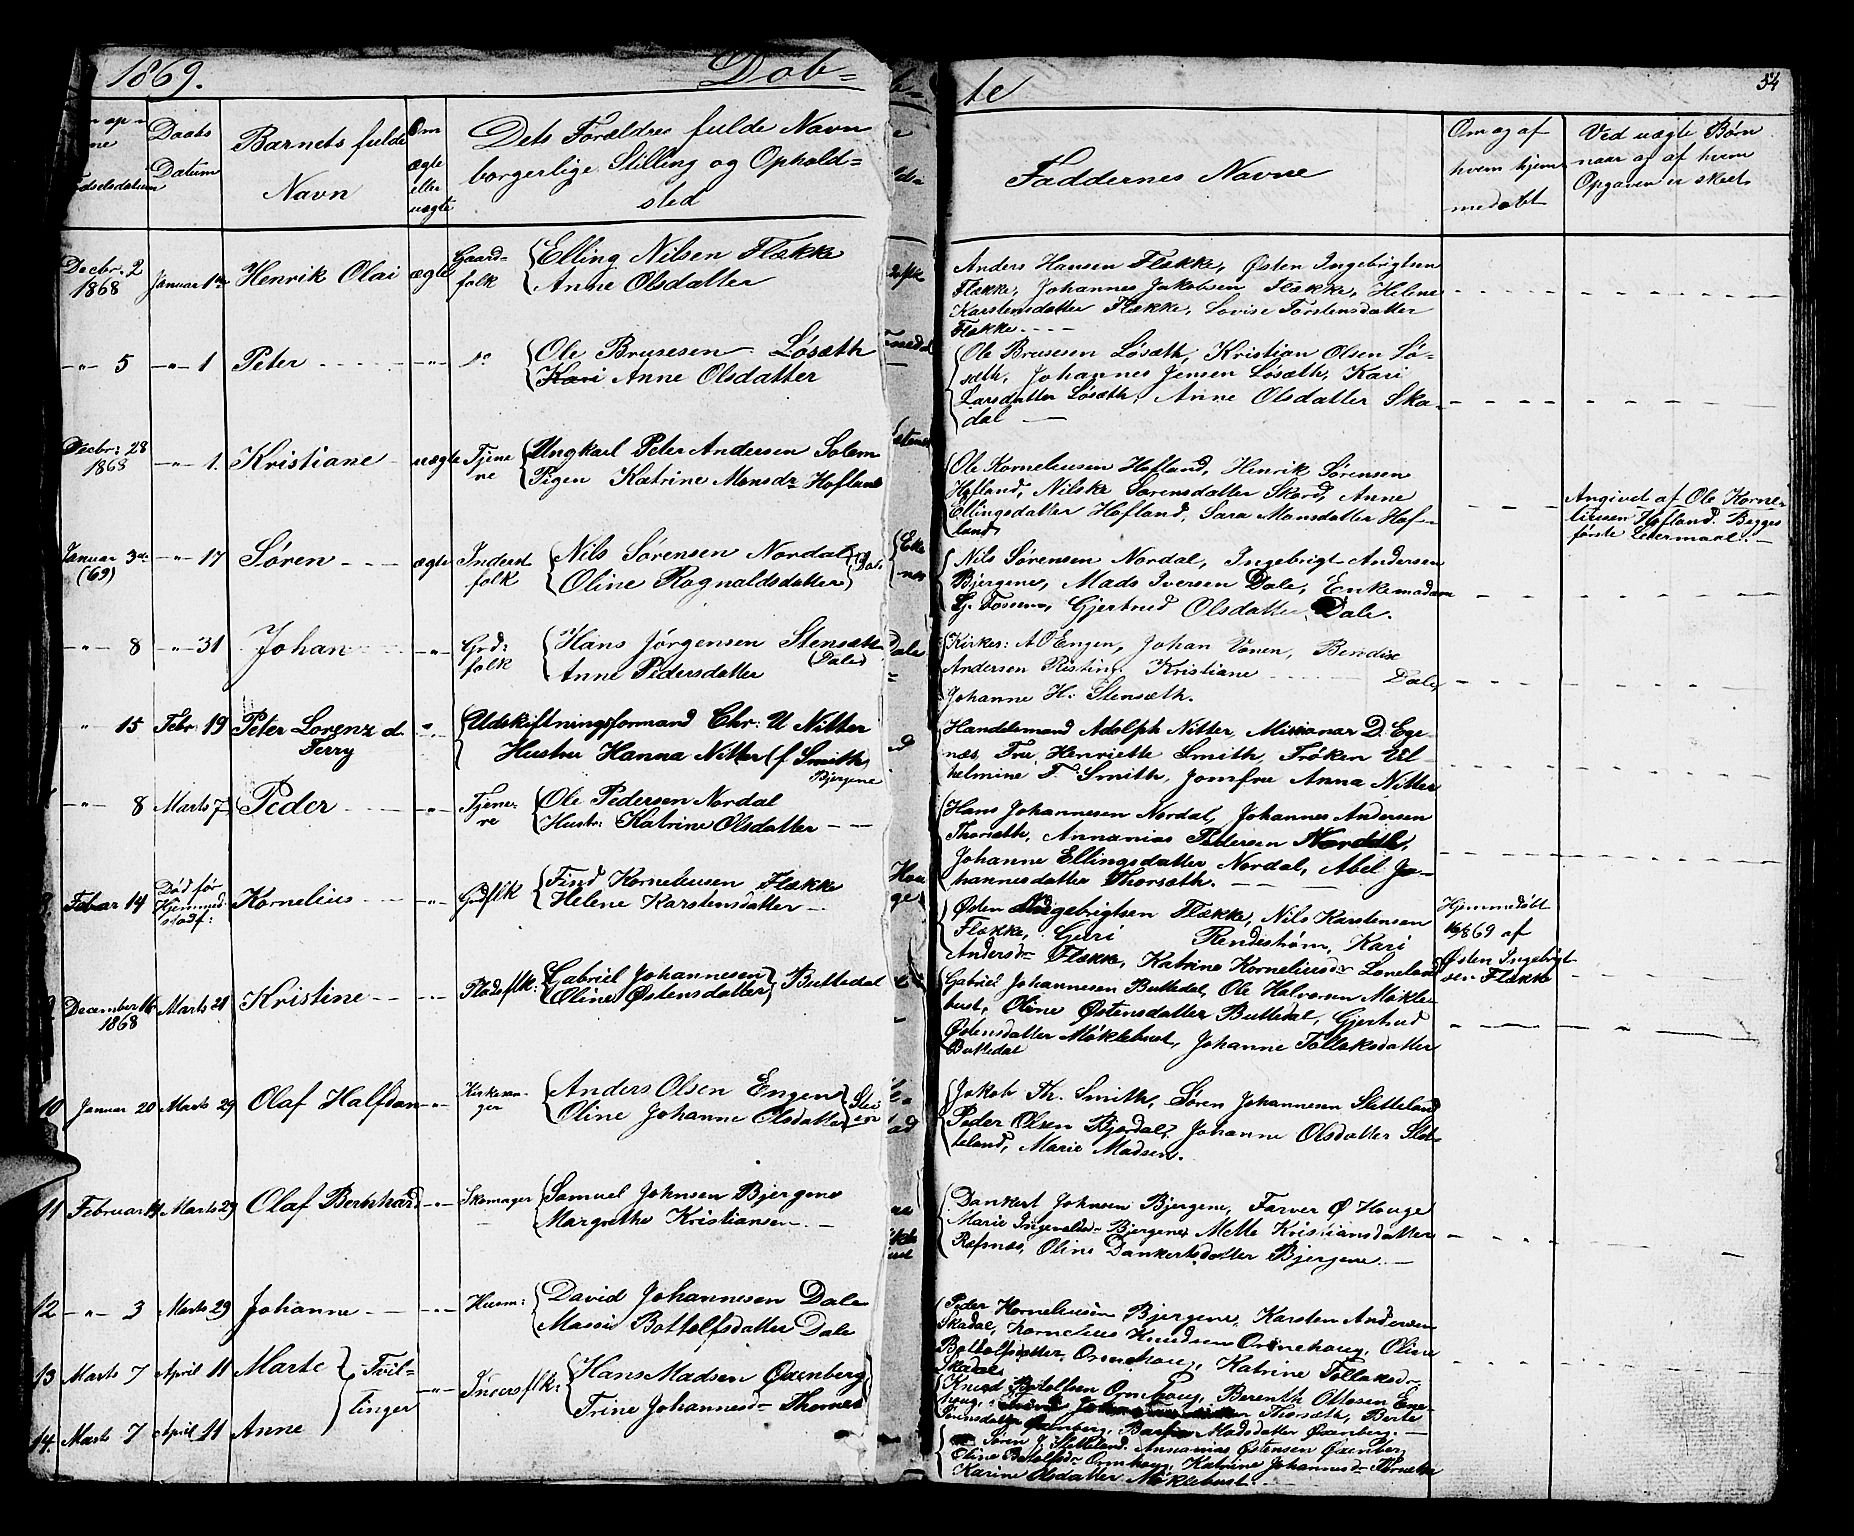 1869.
Døb=
te
54
Daabs
Datum
Barnets fulde
Navn
Om
ægte
eller
uægte
Dets Forældres fulde Navn
borgerlige Stilling og Ophold=
sted
Faddernes Navne
Om og af
hvem hjem
medøbt
Ved uægte Børn
naar og af hvem
Opgaven er skeet
Decbr. 2
1868
Januar 1ste
Henrik Olai
ægte
Gaard-
folk
Elling Nilsen Flække
Anne Olsdatter
Anders Hansen Flække, Østen Ingebrigtsen
Flække, Johannes Jakobsen Flække, Helene
Karstensdatter Flække, Lovise Torstensdatter
Flække
-"- 5
-"- 1
Peter
-"-
do
Ole Brusesen Løsæth
Kari Anne Olsdatter
Ole Brusesen Løsæth, Kristian Olsen Lø-
sæth, Johannes Jensen Løsæth, Kari
Larsdatter Løsæth, Anne Olsdatter Ska-
dal
Decbr: 28
1868
-"- 1.
Kristiane
uægte
Tjene
re
Ungkarl Peter Andersen Solem
Pigen Katrine Monsdr Hofland
Ole Korneliusen Hofland, Henrik Sørensen
Hofland, Nilske Sørensdatter Skord, Anne
Ellingsdatter Hofland, Sara Monsdatter Hof-
land
Angivet af Ole Korne-
liusen Hofland. Begges
første Leiermaal.
Januar 3die
(69)
-"- 17
Søren
ægte
Inderst
folk
Nils Sørensen Nordal
Oline Ragnaldsdatter
Nils Sørensen Nordal, Ingebrigt Andersen
Bjergene, Mads Iversen Dale, Enkemadam
G. Fossum, Gjertrud Olsdatter Dale.
-"- 8
-"- 31
Johan
-"-
Grd:
folk
Hans Jørgensen Stensæth
(Dale)
Anne Pedersdatter
Kirkes: A O Engen, Johan Vonen, Bendix
Andersen Risting Kristiane Dale,
Johanne H. Stensæth.
" 15
Febr. 19
Peter Lorenz d.
Ferry
-"-
Udskiftningsformand Chr: U Nitter
Hustru Hanna Nitter (f. Smith)
Bjergene
Handelsmand Adolph Nitter, Missionær D. Ege-
næs, Fru Henriette Smith, Frøken Vil-
helmine F. Smith, Jomfru Anna Nitter
-"- 8
Marts 7
Peder
-"-
Tjene-
re
Ole Pedersen Nordal
Hustr: Katrine Olsdatter
Hans Johannesen Nordal, Johannes Andersen
Thorsæth, Annanias Pedersen Nordal,
Johanne Ellingsdatter Nordal, Abel Jo-
hannesdatter Thorsæth.
Februar 14
Død før
Hjemmed.
stadf:
Kornelius
-"-
Grdflk
Find Korneliusen Flække
Helene Karstensdatter
Østen Ingebrigtsen Flække, Nils Karstensen
Flække, Guri Rendestrøm, Kari
Andersdr Flække, Katrine Korneliusdr Loneland
Hjemmedøbt
16/2 69 af
Østen Ingebrigt
sen Flække
9
December 16
1868
Marts 21
Kristine
-"-
Pladsflk:
Gabriel Johannesen
Oline Østensdatter
Buttedal
Gabriel Johannesen Buttedal, Ole Halvorsen Møkle-
bust, Oline Østensdatter Buttedal, Gjertrud
Østensdatter Møklebust, Johanne Tollaksdatter
Buttedal
10
Januar 20
Marts 29
Olaf Halfdan
-"-
Kirkesan-
ger
Anders Olsen Engen
Oline Johanne Olsdatter
Jakob Th. Smith, Søren Johannesen Sletteland
Peder Olsen Fjordal, Johanne Olsdatter Slet-
teland, Marie Madsen.
11
Februar 14
Marts 29
Olaf Bernhard
-"-
Skomager
Samuel Johnsen Bjergene
Margrethe Kristiansen
Dankert Johnsen Bjergene, Farver Ø Hauge
Marie Ingevaldsdr Bjergene, Mette Kristiansdatter
Refsnæs, Oline Dankertsdatter Bjergene.
12
-"- 3
Marts 29
Johanne
-"-
Husm:
David Johannesen Dale
Massi Bottolfsdatter Dale
Peder Korneliusen Bjergene, Karsten Andersen
Skadal, Kornelius Knudsen Ornehaug, Oline
Bottolfsdatter Ornehaug, Katrine Tollaksdr
Skadal
13
Marts 7
April 11
Marte
Tvil-
linger
-"-
Indersflk:
Hans Madsen Øxenberg
Trine Johannesdr Thornes
Knud Botolfsen Ornhaug, Berenth Ottosen Ene-
haug, Thorsæth, Berte
Madsdatter Øxenberg.
14.
Marts 7
April 11
Anne
Søren J. Sletteland. Annanias Østensen Øxenberg
Oline Botolfsdr Ornhaug, Katrine Johannesdr
Karine Olsdatter Møklebust.